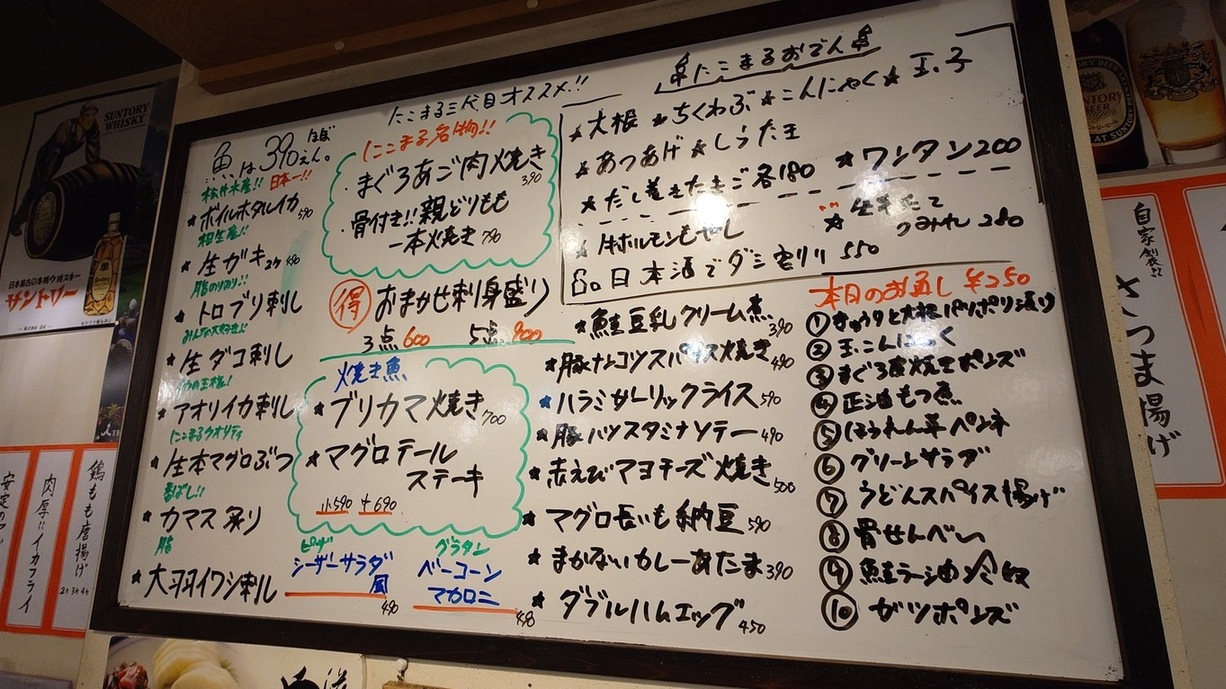 にこまる三代目オススメ!!
魚は390えん。
ほぼ
松件水産!! 日本一!!
★ボイルホタルイカ 590
相生産!!
★生ガキ 2ケ 490
脂のり!!
★トロブリ刺し
みんな大好き!!
★生ダコ刺し
イカの王様!
★アオリイカ刺し
にこまるクオリティ
★生本マグロぶつ
香ばし!!
★カマス炙り
脂
★大羽イワシ刺し
にこまる名物!!
・まぐろあご肉焼き 390
・骨付き!!親どりもも
一本焼き 790
得 おまかせ刺身盛り
3点 600 5点 900
焼き魚
★ブリカマ焼き 700
★マグロテール
ステーキ
小590 大690
ピザ
シーザーサラダ
風 490
グラタン
ベーコーン
マカロニ 490
にこまるおでん
★大根 ★ちくわぶ ★こんにゃく ★玉子
★あつあげ ★しらた玉
★だし巻きたまご 各180 ★ワンタン200
★牛ホルモンもやし
★生姜たて
つみれ 280
日本酒でダシ割り!! 550
★鮭豆乳クリーム煮 390
★豚ナンコツスパイス焼き 490
★ハラミガーリックライス 590
★豚ハツスタミナソテー 490
★赤えびマヨチーズ焼き 500
★マグロ長いも納豆 590
★まかないカレーあたま 390
★ダブルハムエッグ 450
本日のお通し ¥250
①きゅうりと大根パリポリ漬け
②玉こんにゃく
③まぐろ皮焼きポンズ
④正油もつ煮
⑤ほうれん草ペンネ
⑥グリーンサラダ
⑦うどんスパイス揚げ
⑧骨せんべい
⑨鮭ラー油冷奴
⑩ガツポンズ
SUNTORY
WHISKY
サントリー
鶏もも唐揚げ
肉厚!!イカフライ
自家製!!
さつま揚げ
SUNTORY
BEER